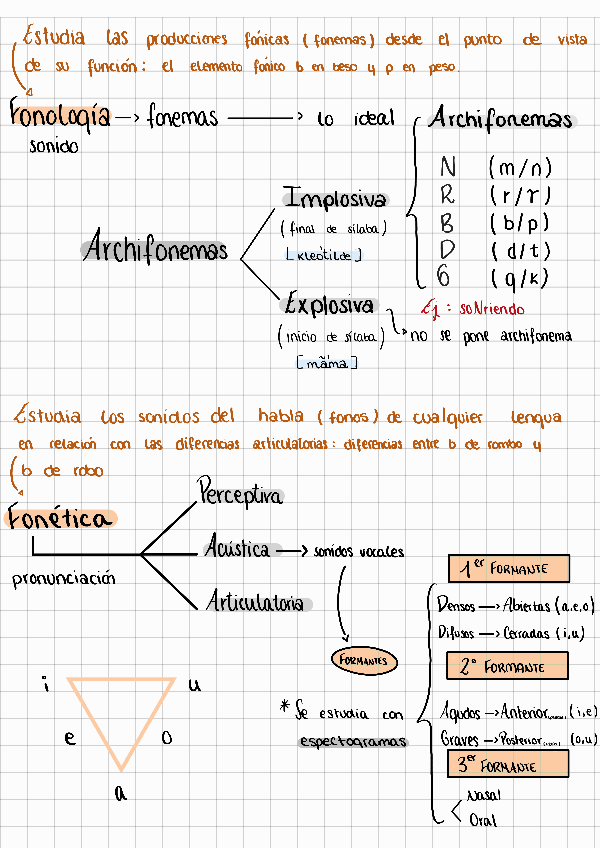 Estudia las producciones fónicas (fonemas) desde el punto de vista
de su función: el elemento fónico b en beso y p en peso.
Fonología → fonemas → lo ideal
sonido
Archifonemas
N (m/n)
R (r/r̄)
B (b/p)
D (d/t)
G (g/k)
Ej: soNriendo
Archifonemas
Implosiva
(final de sílaba)
[kleótilde]
Explosiva
(inicio de sílaba)
[mãma]
no se pone archifonema
Estudia los sonidos del habla (fonos) de cualquier lengua
en relación con las diferencias articulatorias: diferencias entre b de rombo y
b de robo
Fonética
pronunciación
Perceptiva
Acústica → sonidos vocales
Articulatoria
FORMANTES
* Se estudia con
espectogramas
1er FORMANTE
Densos → Abiertas (a,e,o)
Difusos → Cerradas (i,u)
2º FORMANTE
Agudos → Anterior (i,e)
Graves → Posterior (o,u)
3er FORMANTE
Nasal
Oral
i u
e o
a